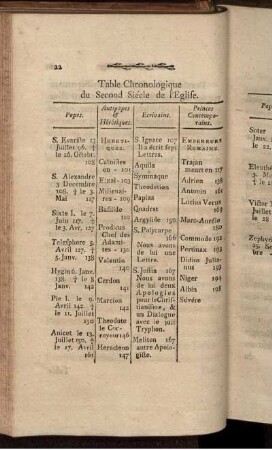 22
Table Chronologique
du Second Siécle de l'Eglise.
Papes.
S. Evariste 13
Juillet 96. †
le 26. Octob.
108
S. Alexandre
3 Decembre
108. † le 3.
Mai 117
Sixte I. le 7.
Juin 117. †
le 3. Avr. 127
Telesphore 5
Avril 127. †
5. Janv. 138
Hygin 6. Janv.
138. † le 8
Janv. 142
Pie I. le 9.
Avril 142. †
le 11. Juillet
150
Anicet le 13.
Juillet 150. †
le 17. Avril
161
Antipapes
&
Hérétiques.
HERETI-
QUES.
Caïnites
en - 101
Elxaï - 103
Millenai-
res - 109
Basilide
Prodicus
Chef des
Adami-
tes - 130
Valentin
140
Cerdon
141
Marcion
142
Theodote
le Co-
royeur 146
Heracleon
147
Ecrivains.
S. Ignace 107
Il a écrit sept
Lettres.
Aquila
Symmaque
Theodotion
Papias
Quadrat
Argyide 150
S. Polycarpe
166
Nous avons
de lui une
Lettre.
S. Justin 167
Nous avons
de lui deux
Apologies
pour le Christ-
tianisme, &
un Dialogue
avec le juif
Tryphon.
Meliton 167
autre Apolo-
giste.
Princes
Contempo-
rains.
EMPEREURS
ROMAINS.
Trajan
meurt en 117
Adrien 138
Antonin 161
Lucius Verus
169
Marc-Aurele
180
Commode 192
Pertinax 193
Didius Julia-
nus 193
Niger 195
Albin 198
Sévére